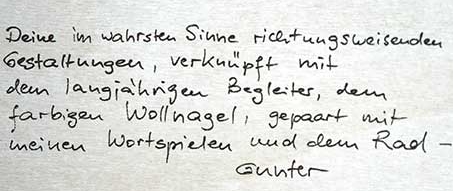 Deine im wahrsten Sinne richtungsweisenden
Gestaltungen, verknüpft mit
dem langjährigen Begleiter, dem
farbigen Wollnagel, gepaart mit
meinen Wortspielen und dem Rad –
Gunter